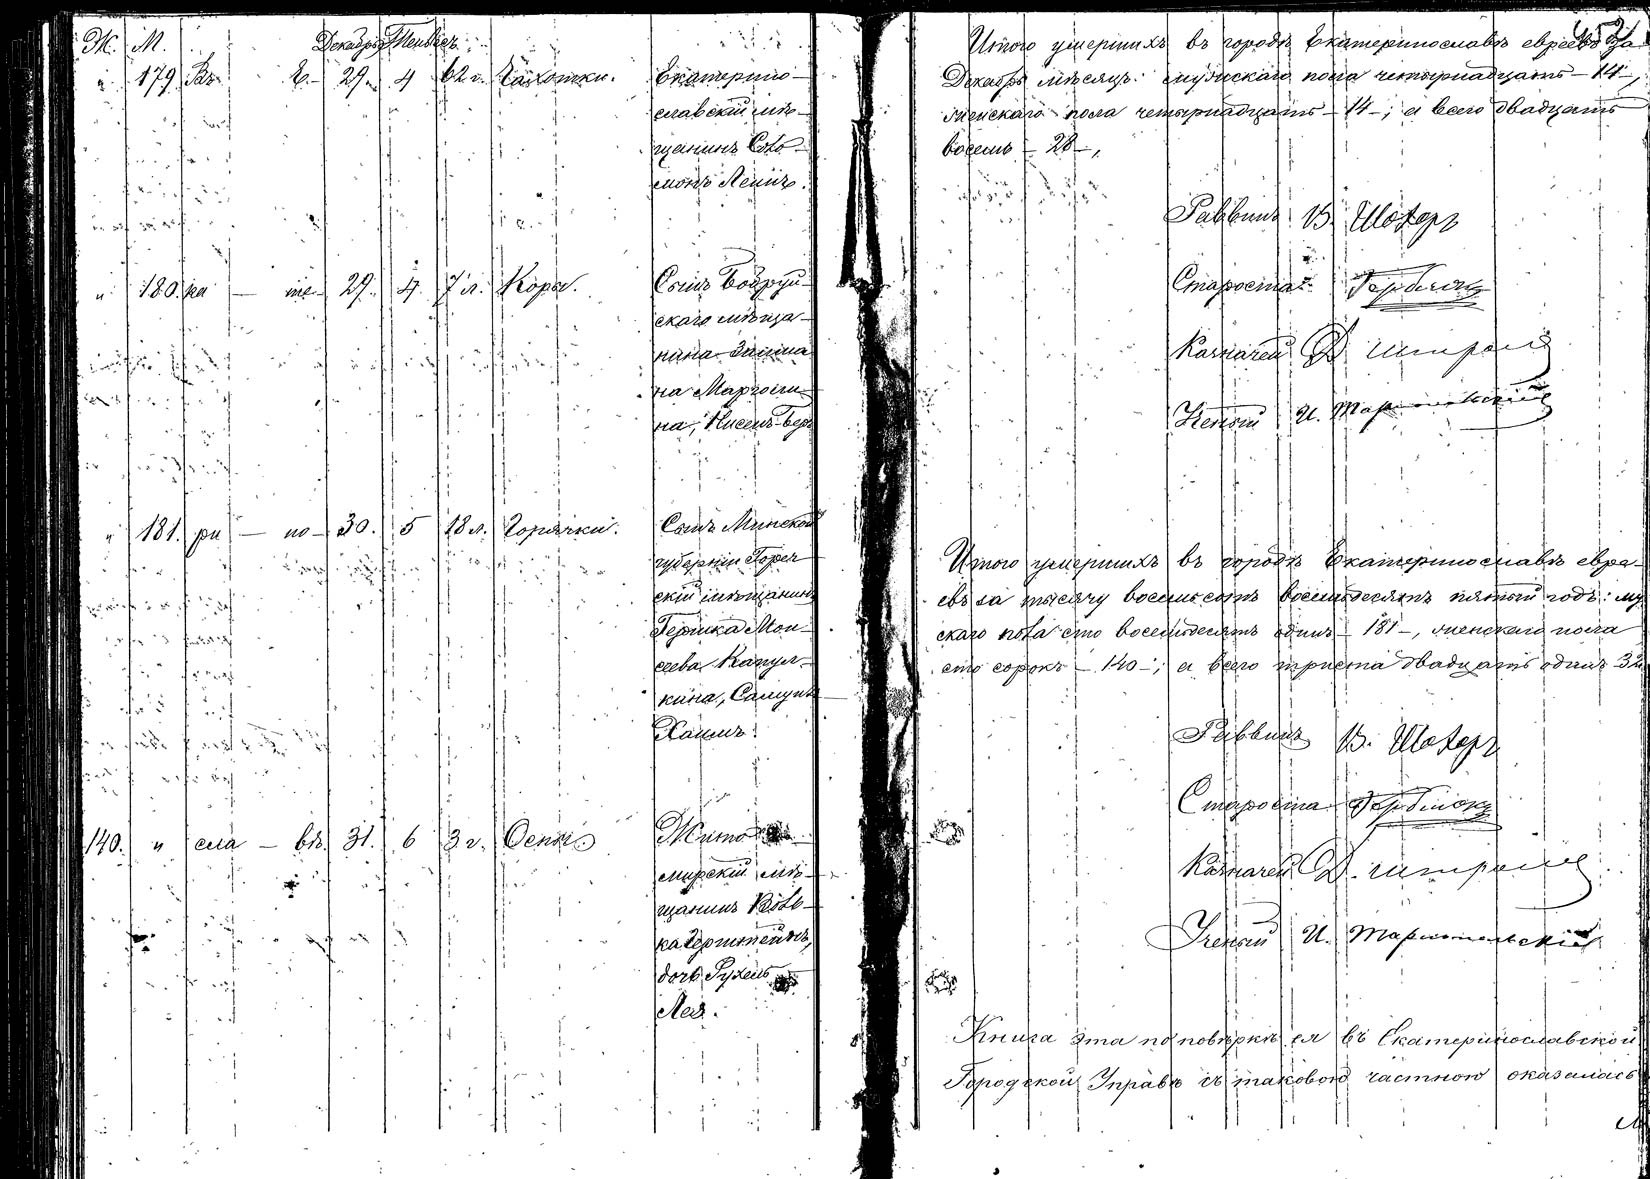 Ж. М. Декабрь Тейвесъ.
" 179 Въ Е- 29. 4 62 г. Чахотки. Екатерино-
славскій мѣ-
щанинъ Соло-
монъ Левинъ.
" 180. ка — те- 29. 4. 7 л. Корь. Сынъ Бобруй-
скаго мѣща-
нина
на Марголи-
на, Нисенъ-Беръ
" 181. ри — но- 30. 5 18 л. Горячки. Сынъ Минской
губерніи
скій мѣщанинъ
Гершка Мои-
сеева
кина,
Хаимъ.
140. " сла — вѣ. 31. 6 3 г. Оспы. Жито-
мирскій мѣ-
щанинъ Воль-
ка
дочь Рухель
Лея.
Итого умершихъ въ городѣ Екатеринославѣ евреевъ за
Декабрь мѣсяцъ: мужскаго пола четырнадцать - 14 -,
женскаго пола четырнадцать - 14 -; а всего двадцать
восемь - 28 -,
Раввинъ В. Шохоръ
Староста
Казначей
Ученый И.
Итого умершихъ въ городѣ Екатеринославѣ евре-
евъ за тысячу восемьсотъ восемьдесятъ пятый годъ: му
скаго пола сто восемьдесятъ одинъ - 181 -, женскаго пола
сто сорокъ - 140 -; а всего триста двадцать одинъ 32
Раввинъ В. Шохоръ
Староста
Казначей
Ученый И.
Книга эта по повѣркѣ ея въ Екатеринославской
Городской Управѣ съ таковою частною оказалась